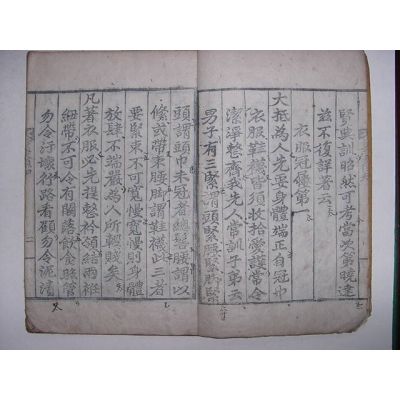 賢典訓昭然可考當次第曉達
茲不復詳著云
衣服冠履第一
大抵為人先要身體端正自冠巾
衣服鞋襪皆須收拾愛護常令
潔淨整齊我先人常訓子弟云
男子有三緊謂頭緊腰緊脚緊
頭謂頭巾未冠者總髻腰謂以
絛或帶束腰脚謂鞋襪此三者
要緊束不可寬慢寬慢則身體
放肆不端嚴為人所輕賤矣
凡著衣服必先提整衿領結兩衽
紐帶不可令有闕落飲食照管
勿令汚壞行路看顧勿令泥漬